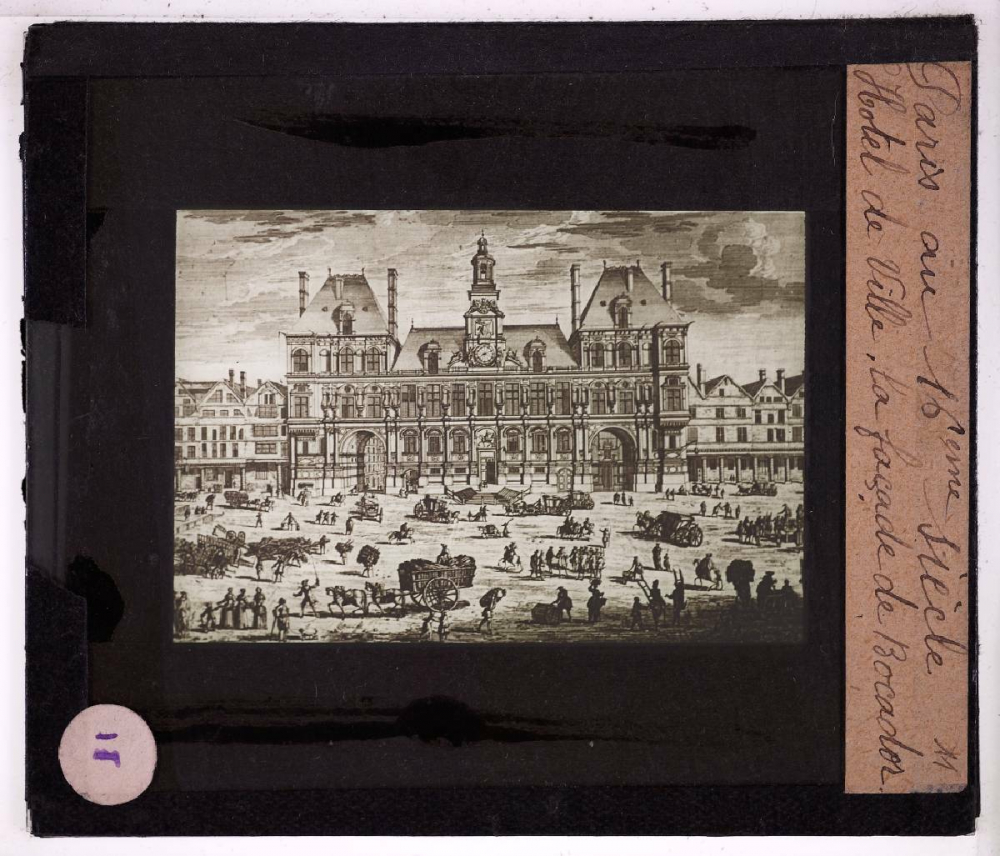 Paris au 16ème siècle
Hotel de Ville, la façade de Bocador.
11